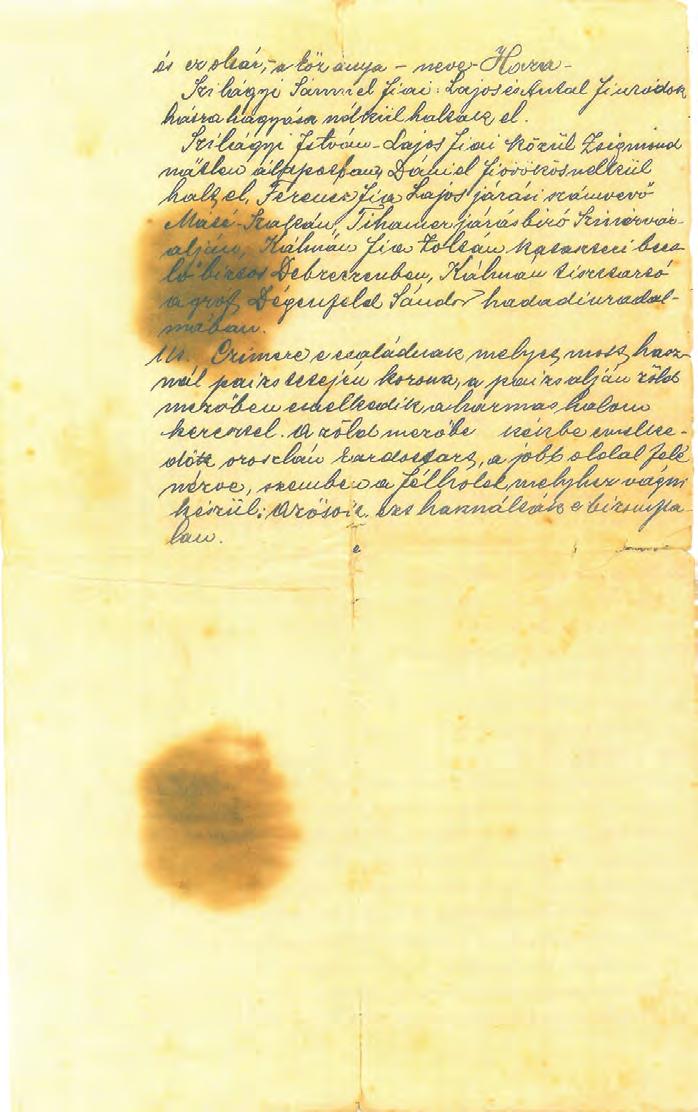 és ez oltár, - a köz anya - neve - Haza -
Szilágyi Sámuel fiai: Lajos és Antal fiutódok
hátra hagyása nélkül haltak el.
Szilágyi István - Lajos fiai közül Zsigmond
nőtlen állapotban, Dániel fiörökös nélkül
halt el, Ferencz fia Lajos járási számvevő
Mező Tihamér járásbiró Szinérvár-
alján, Kálmán fia Zoltán kataszteri becs-
lőbiztos Debreczenben, Kálmán tiszttartó
a gróf Dégenfeld Sándor hadadi uradal-
mában.
Czimere e családnak melyet most hasz-
nál paizs tetején korona, a paizs alján zöld
mezőben emelkedik a hármas halom
kereszttel. A zöld mezőbe kézbe emelke-
dött oroszlán kardot tart, a jobb oldal felé
nézve, szemben a félhold, melyhez vágni
készül; Az ősök ezt használták bizonyta-
lan.